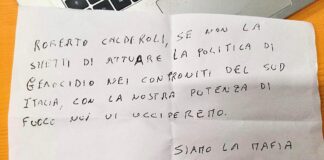 ROBERTO CALDEROLI, SE NON LA
SMETTI DI ATTUARE LA POLITICA DI
GENOCIDIO NEI CONFRONTI DEL SUD
ITALIA, CON LA NOSTRA POTENZA DI
FUOCO NOI VI UCCIDEREMO.
SIAMO LA MAFIA